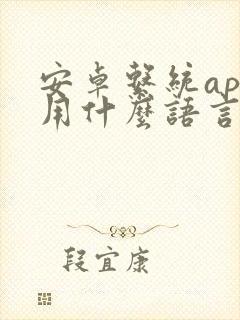 安卓繫統ap
用什麼語言
段宜康